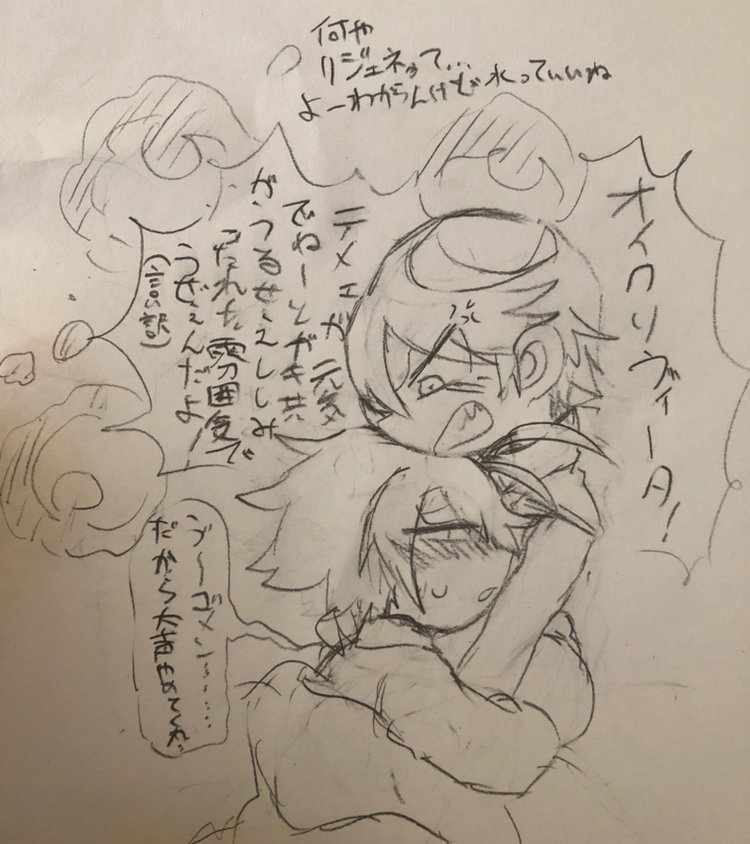 何や
リジェネって...
よーわからんけど 氷っていいね
オイクリヴィータ!
テメェが元気
でねーとガキ共
がうるせェししみ
ったれた雰囲気で
うぜェんだよ!
(言い訳)
う〜ゴメン……
だから大声やめてくれ